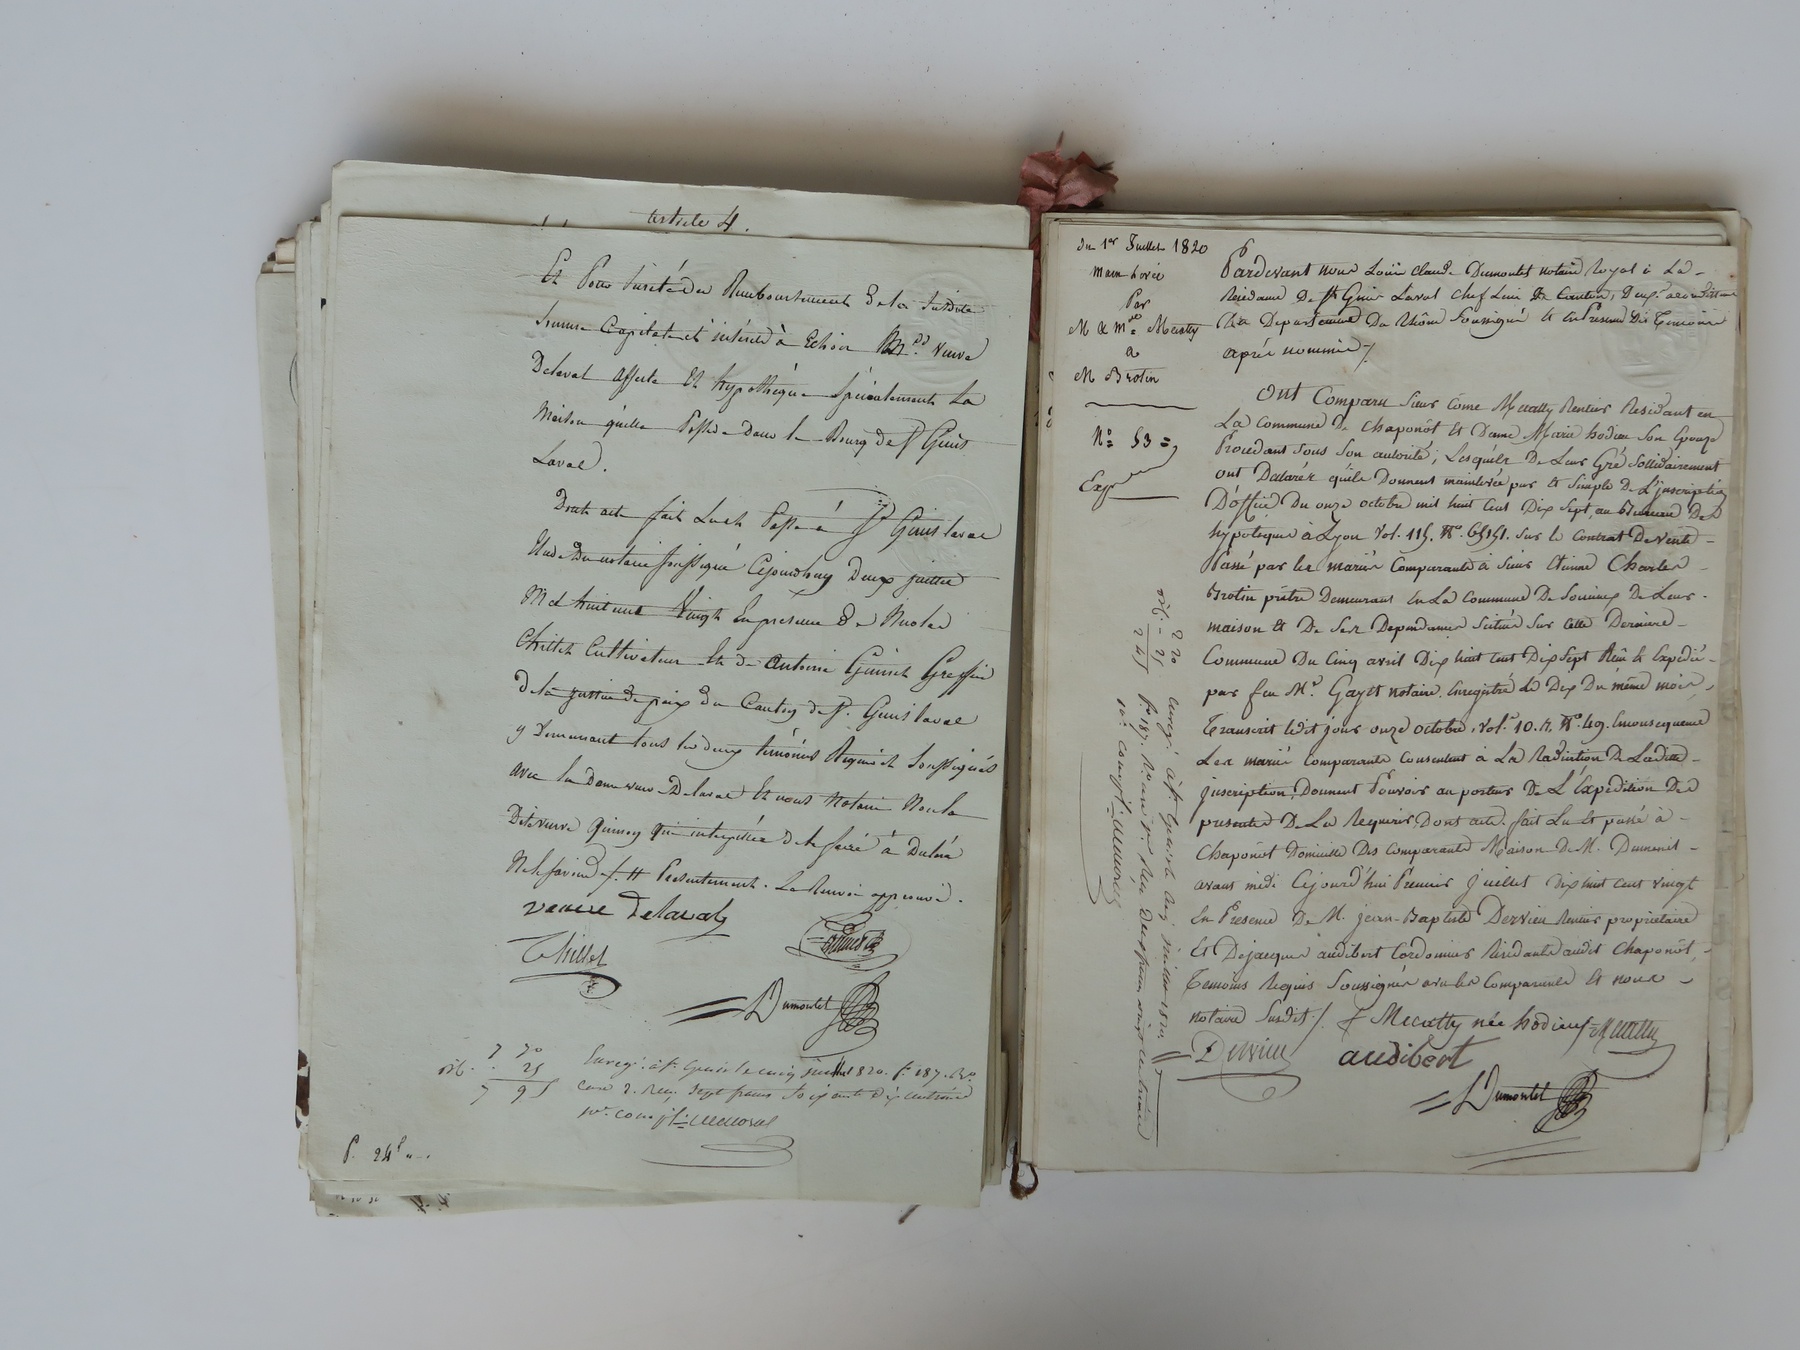 article 4.
Et Pour Sureté du Remboursement de la Susdite
Somme Capitale et intérêts à Echoir Md. veuve
Delaval affecte Et hypothéque Spécialement La
Maison qu'elle Posséde dans le Bourg de St Genis
Laval.
Dont acte fait Lu et Passé à St Genis laval
Etude du notaire soussigné Cejourdhuy Deux juillet
Mil huit cent Vingt En présence de Nicolas
Chillet Cultivateur Et de antoine Greffier
de la justice de paix du Canton de St. Genis laval
y demeurant tous les deux témoins Requis et soussignés
avec la dame veuve Delaval Et nous Notaire Non la
Dite veuve qui interpellée de le faire à Déclaré
Ne le savoir ./. Présentement. Le Renvoi approuvé.
veuve Delaval
Chillet
Dumortet
7 70
dix. 25
7 95
Enregt. à St. Genis le cinq juillet 1820. fo. 187. Ro.
case 2. Reçu Sept francs Soixante dix centimes
P. 24f
du 1er Juillet 1820
Main Levée
Par
M & Mde Meatty
a
M Brotin
No. 53
Expon
Pardevant nous Loüis Claude Dumortet notaire Royal à La
Résidance De St Genis Laval Chef Lieu De Canton,
Département Du Rhône Soussigné et en Présence Des Temoins
après nommés ./.
Ont Comparu Sieur Côme Meatty Rentier Résidant en
La Commune De Chaponôt Et Dame Marie hodieu Son Epouse
Procédant Sous Son autorité, Lesquels De Leur Gré Sollidairement
ont Déclarés qu'ils Donnent mainlevée pur et Simple De L'jnscription
D'office Du onze octobre mil huit Cent Dix Sept, au Bureau Des
hypoteques à Lyon Vol. 115. No. Sur le Contrat De vente
Passé par les mariés Comparants à Sieur Etienne Charles
Brotin prêtre Demeurant En La Commune De De Leur
maison et De Ses Dépendances Scitués Sur Cette Dernière
Commune Du Cinq avril Dix huit Cent Dix Sept Reçu et Expédié
par feu Me. Gayet notaire, Enregistré le Dix Du même mois,
Transcrit le dit jour onze octobre, Vol. No. 49. En conséquence
Les mariés Comparants Consentent à La Radiation De Ladite
jnscription, Donnent Pouvoir au porteur De L'Expédition Des
présentes De La Requérir, Dont acte. fait Lu Et passé à
Chaponôt Domicille Des Comparants Maison De M. Dumenil
avant midi Cejourd'hui Premier juillet Dix huit cent vingt
En Présence De M. jean-Baptiste Dervieu Rentier propriétaire
Et De jacques audibert Cordonnier Résidants audit Chaponôt,
Témoins Requis Soussignés avec les Comparants Et nous
notaire Susdit ./. Meatty née hodieu Meatty
Dervieu audibert
Dumortet
2 20
dix. - 25
2 45
Enregt. à St. Genis le cinq juillet 1820.
fo. 187. Ro. Reçu deux francs vingt centimes